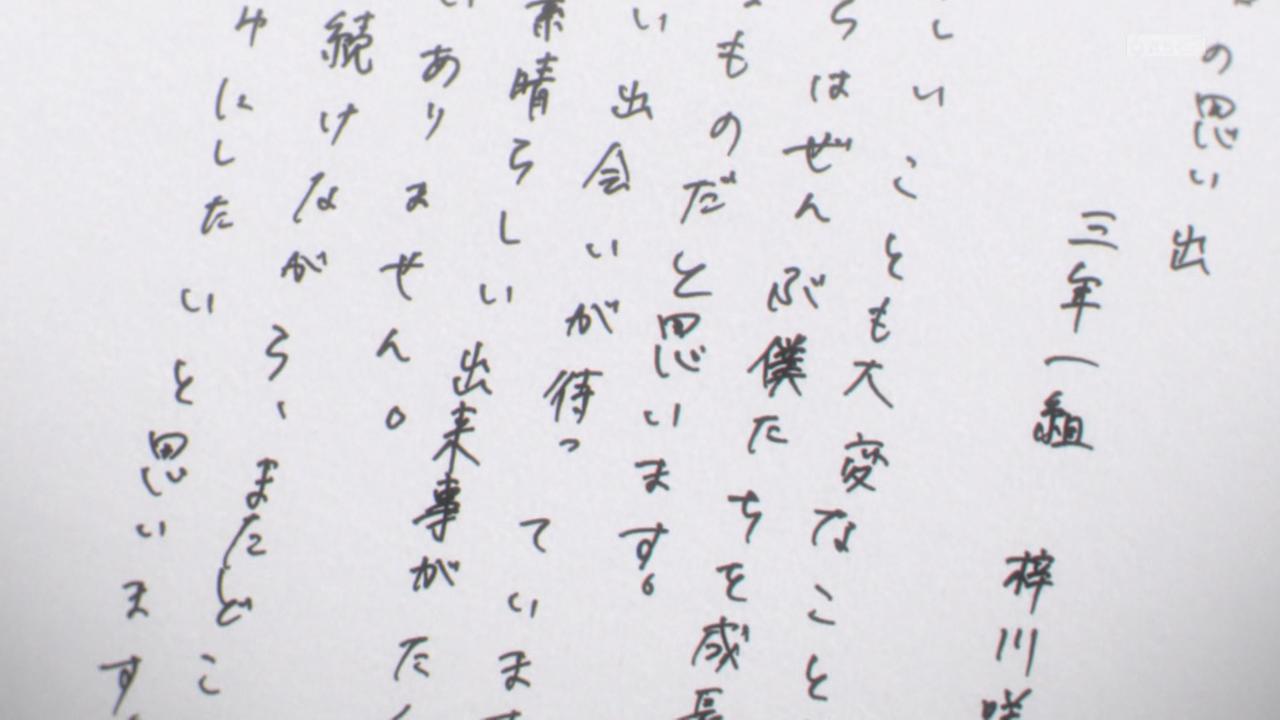 の思い出
三年一組 梓川咲
しいことも大変なこと
らはぜんぶ僕たちを成長
ものだと思います。
い出会いが待っています
素晴らしい出来事がた
ありません。
続けながら、またどこ
にしたいと思います